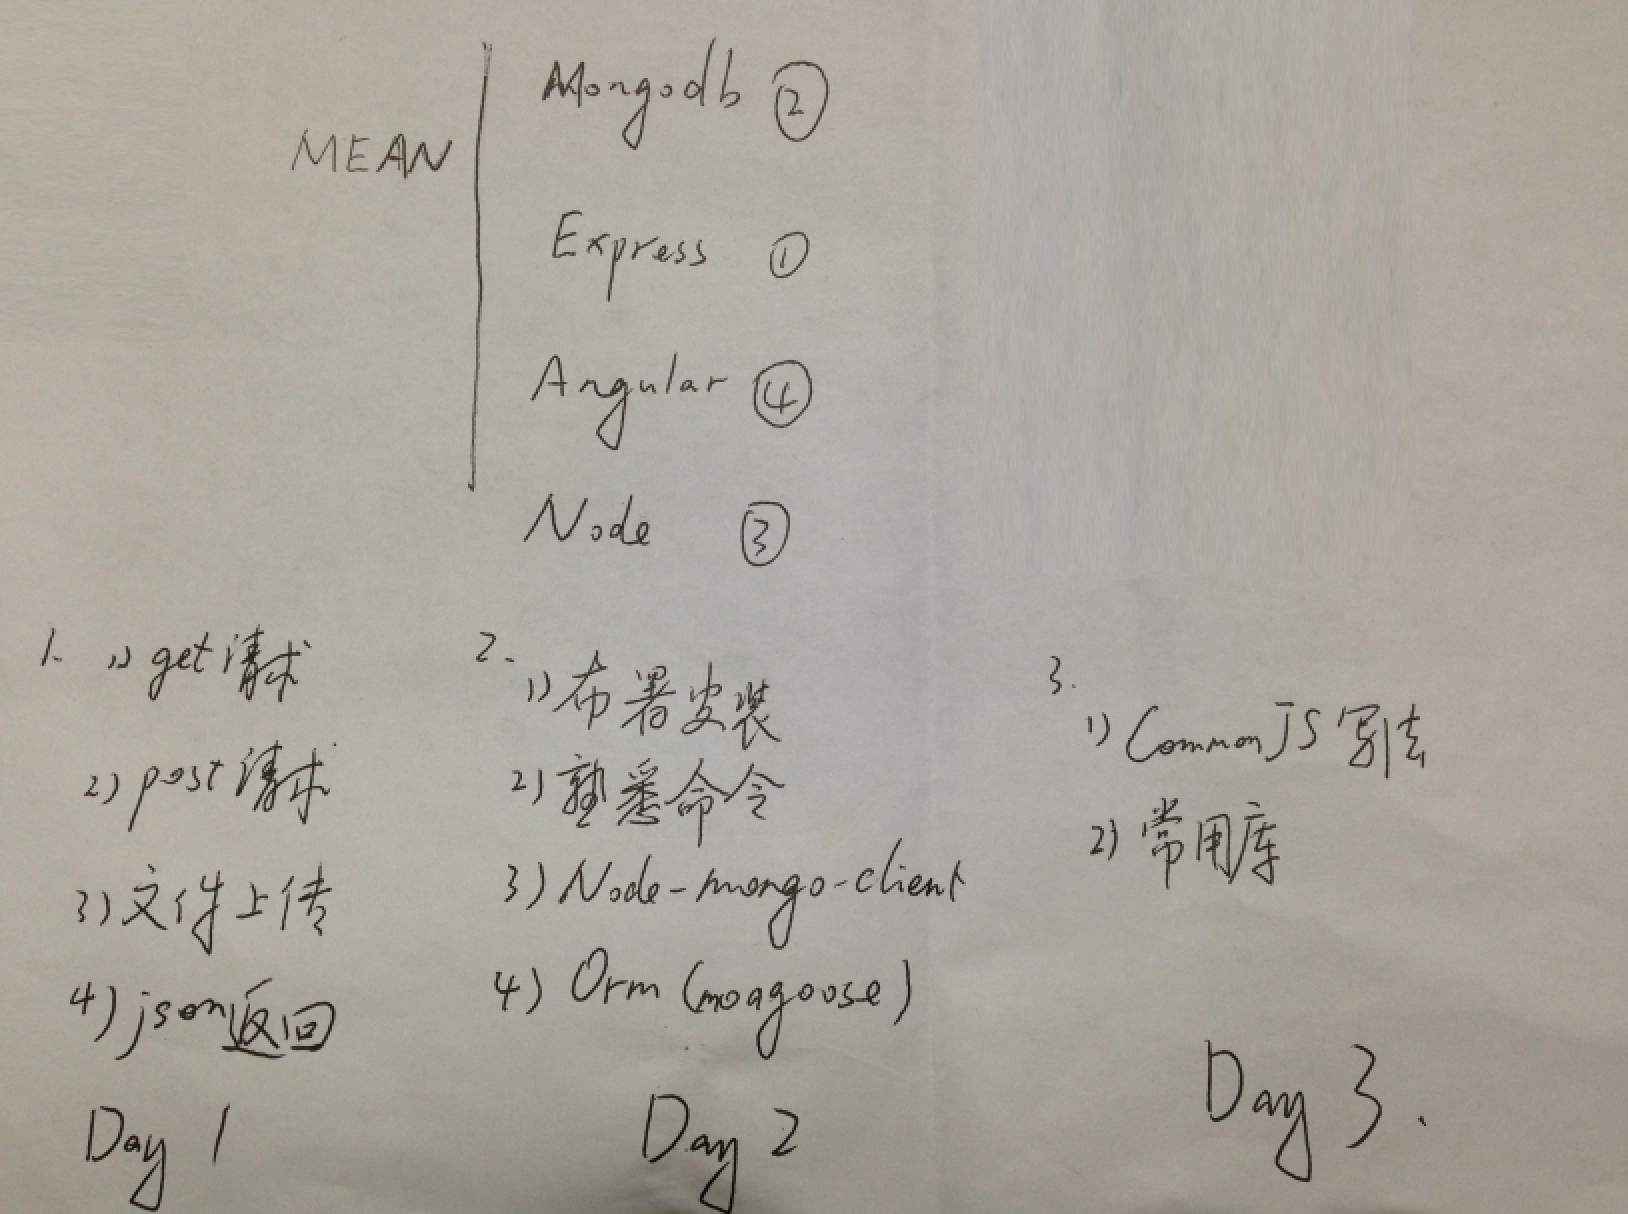 MEAN
Mongodb ②
Express ①
Angular ④
Node ③
1. 1) get请求
2) post请求
3) 文件上传
4) json返回
Day 1
2.
1) 布署安装
2) 熟悉命令
3) Node-mongo-client
4) Orm (moogoose)
Day 2
3.
1) CommonJS写法
2) 常用库
Day 3.